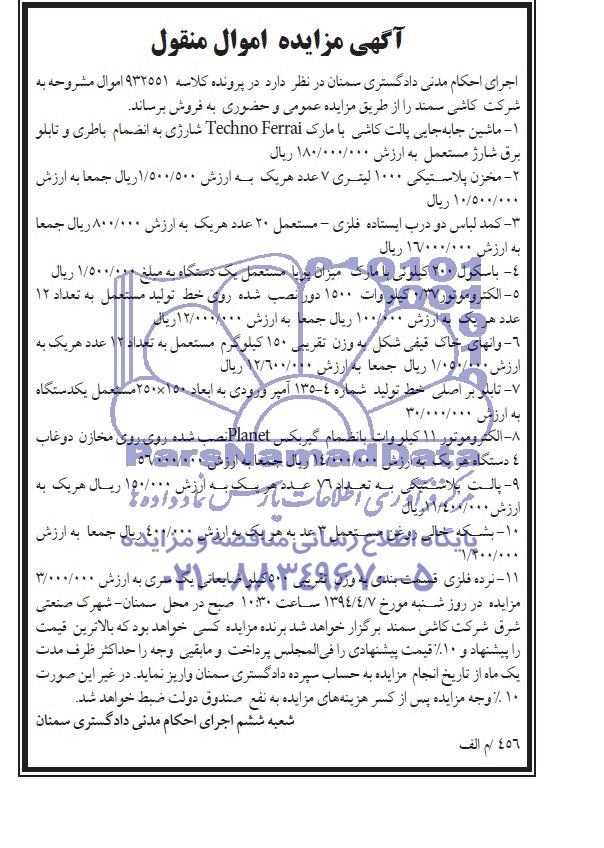 آگهی مزایده اموال منقول
اجرای احکام مدنی دادگستری سمنان در نظر دارد در پرونده کلاسه ۹۳۲۵۵۱ اموال مشروحه به
شرکت کاشی سمند را از طریق مزایده عمومی و حضوری به فروش برساند.
۱- ماشین جابه‌جایی پالت کاشی با مارک Techno Ferrai شارژی به انضمام باطری و تابلو
برق شارژ مستعمل به ارزش ۱۸۰/۰۰۰/۰۰۰ ریال
۲- مخزن پلاستیکی ۱۰۰۰ لیتری ۷ عدد هریک به ارزش ۱/۵۰۰/۵۰۰ریال جمعا به ارزش
۱۰/۵۰۰/۰۰۰ ریال
۳- کمد لباس دو درب ایستاده فلزی – مستعمل ۲۰ عدد هریک به ارزش ۸۰۰/۰۰۰ ریال جمعا
به ارزش ۱۶/۰۰۰/۰۰۰ ریال
۴- باسکول ۲۰۰ کیلوئی با مارک میزان پویا مستعمل یک دستگاه به مبلغ ۱/۵۰۰/۰۰۰ ریال
۵- الکتروموتور۰/۳۷ کیلو وات ۱۵۰۰ دور نصب شده روی خط تولید مستعمل به تعداد ۱۲
عدد هر یک به ارزش ۱۰۰/۰۰۰ ریال جمعا به ارزش ۱۲/۰۰۰/۰۰۰ریال
۶- وانهای خاک قیفی شکل به وزن تقریبی ۱۵۰ کیلوگرم مستعمل به تعداد ۱۲ عدد هریک به
ارزش ۱/۰۵۰/۰۰۰ ریال جمعا به ارزش ۱۲/۶۰۰/۰۰۰ ریال
۷- تابلو بر اصلی خط تولید شماره ۴-۱۳۵ آمپر ورودی به ابعاد ۱۵۰×۲۵۰مستعمل یکدستگاه
به ارزش ۳۰/۰۰۰/۰۰۰
۸- الکتروموتور ۱۱ کیلو وات بانضمام گیربکس Planetنصب شده روی روی مخازن دوغاب
۴ دستگاه هر یک به ارزش ۱۴/۰۰۰/۰۰۰ ریال جمعا به ارزش ۵۶/۰۰۰/۰۰۰ریال
۹- پالت پلاستیکی به تعداد ۷۶ عدد هر یک به ارزش ۱۵۰/۰۰۰ ریال هریک به
ارزش۱۱/۴۰۰/۰۰۰ریال
۱۰- بشکه خالی روغن مستعمل ۳عد به هر یک به ارزش ۴۰۰/۰۰۰ ریال جمعا به ارزش
۱/۲۰۰/۰۰۰
۱۱- نرده فلزی قسمت بندی به وزن تقریبی ۵۰۰کیلو ضایعاتی یک سری به ارزش ۳/۰۰۰/۰۰۰
مزایده در روز شنبه مورخ ۱۳۹۴/۴/۷ ساعت ۱۰:۳۰ صبح در محل سمنان- شهرک صنعتی
شرق شرکت کاشی سمند برگزار خواهد شد برنده مزایده کسی خواهد بود که بالاترین قیمت
را پیشنهاد و ۱۰٪ قیمت پیشنهادی را فی‌المجلس پرداخت و مابقیی وجه را حداکثر ظرف مدت
یک ماه از تاریخ انجام مزایده به حساب سپرده دادگستری سمنان واریز نماید. در غیر این صورت
۱۰ ٪ وجه مزایده پس از کسر هزینه‌های مزایده به نفع صندوق دولت ضبط خواهد شد.
شعبه ششم اجرای احکام مدنی دادگستری سمنان
۴۵۶ /م الف
ParsNamadData
مرکز فرآوری اطلاعات پارس نماد داده‌ها
پایگاه اطلاع رسانی مناقصه و مزایده
۰۲۱-۸۸۳۴۹۶۷۰-۵